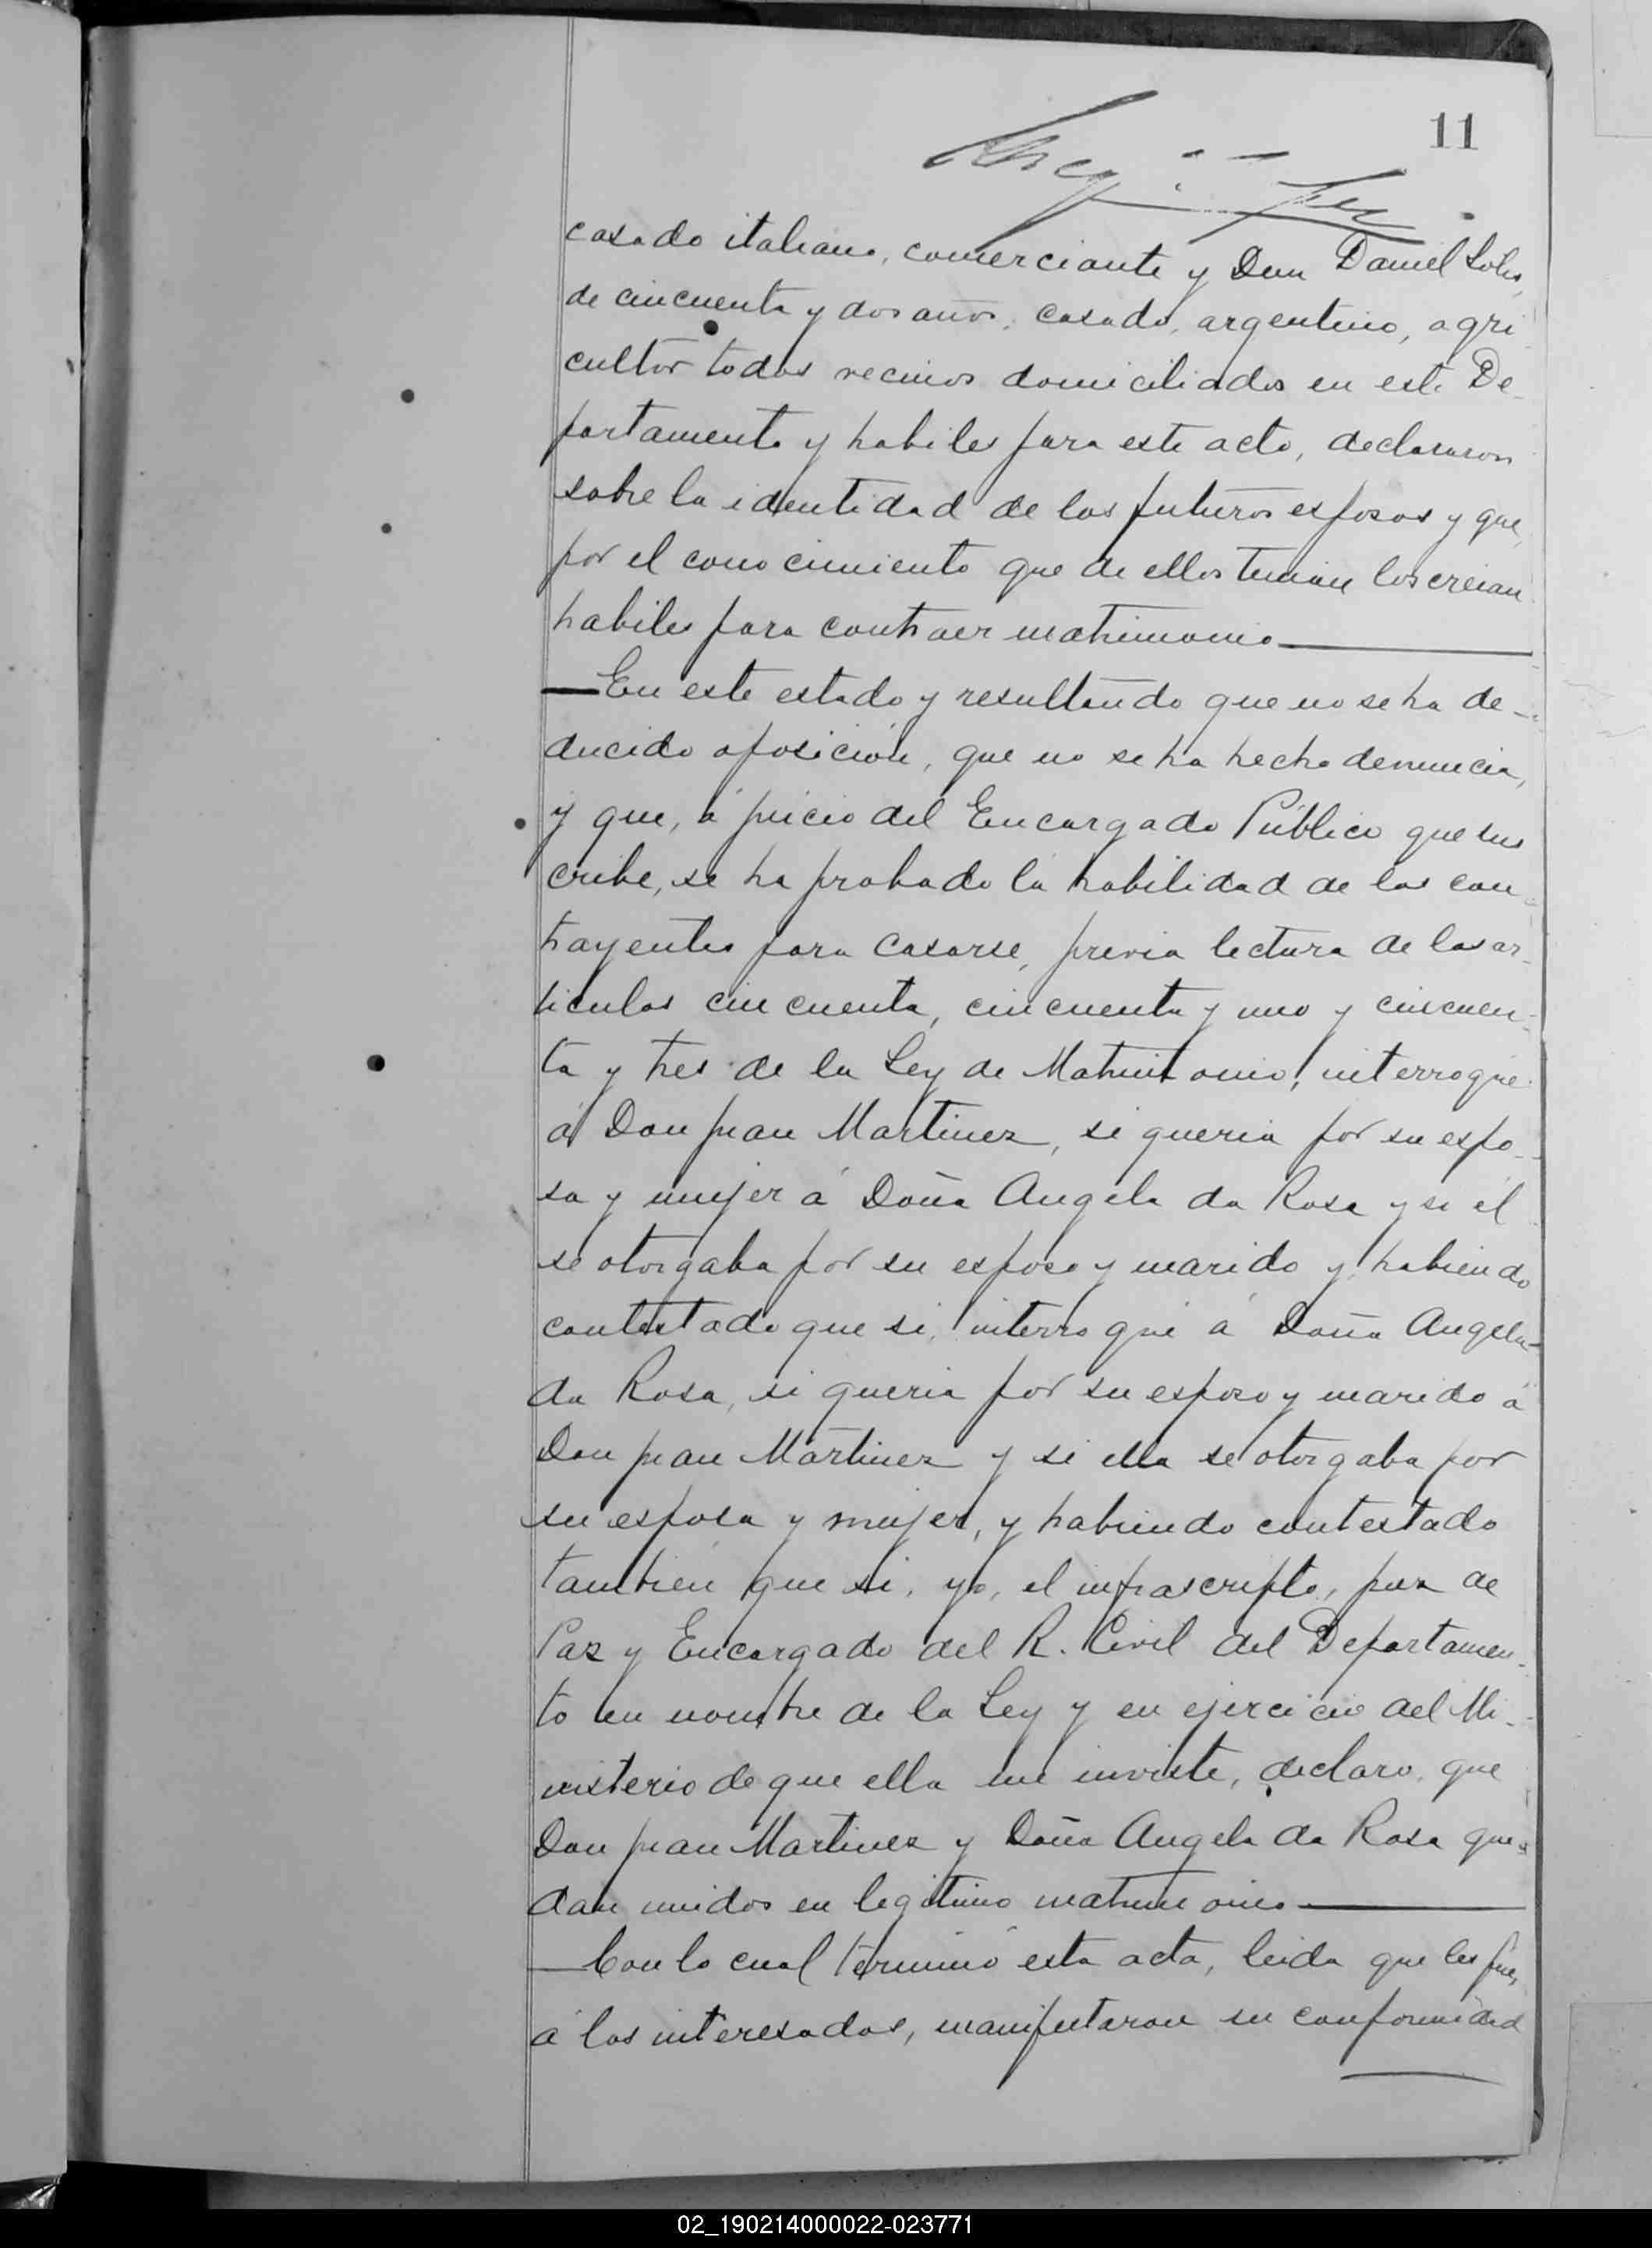 11
casado italiano, comerciante y Don Daniel Solis,
de cincuenta y dos años, casado, argentino, agri
cultor todos vecinos domiciliados en este De-
partamento y habiles para este acto, declararon
sobre la identidad de los futuros esposos y que,
por el conocimiento que de ellos tenian los creian
habiles para contraer matrimonio
En este estado y resultando que no se ha de-
ducido oposición, que no se ha hecho denuncia,
y que, á juicio del Encargado Público que sus
cribe, se ha probado la habilidad de los con
trayentes para casarse, previa lectura de los ar-
ticulos cincuenta, cincuenta y uno y cincuen-
ta y tres de la Ley de Matrimonio, interrogué
á Don Juan Martinez, si queria por su espo-
sa y mujer á Doña Angela da Rosa y si él
se otorgaba por su esposo y marido y habiendo
contestado que si, interrogué á Doña Angela
da Rosa, si queria por su esposo y marido á
Don Juan Martinez y si ella se otorgaba por
su esposa y mujer, y habiendo contestado
tambien que si, yo, el infrascripto, Juez de
Paz y Encargado del R. Civil del Departamen-
to en nombre de la Ley y en ejercicio del Mi-
nisterio de que ella me inviste, declaro, que
Don Juan Martinez y Doña Angela da Rosa que-
dan unidos en legitimo matrimonio
Con lo cual terminó esta acta, leida que les fue,
á los interesados, manifestaron su conformidad
02_190214000022-023771